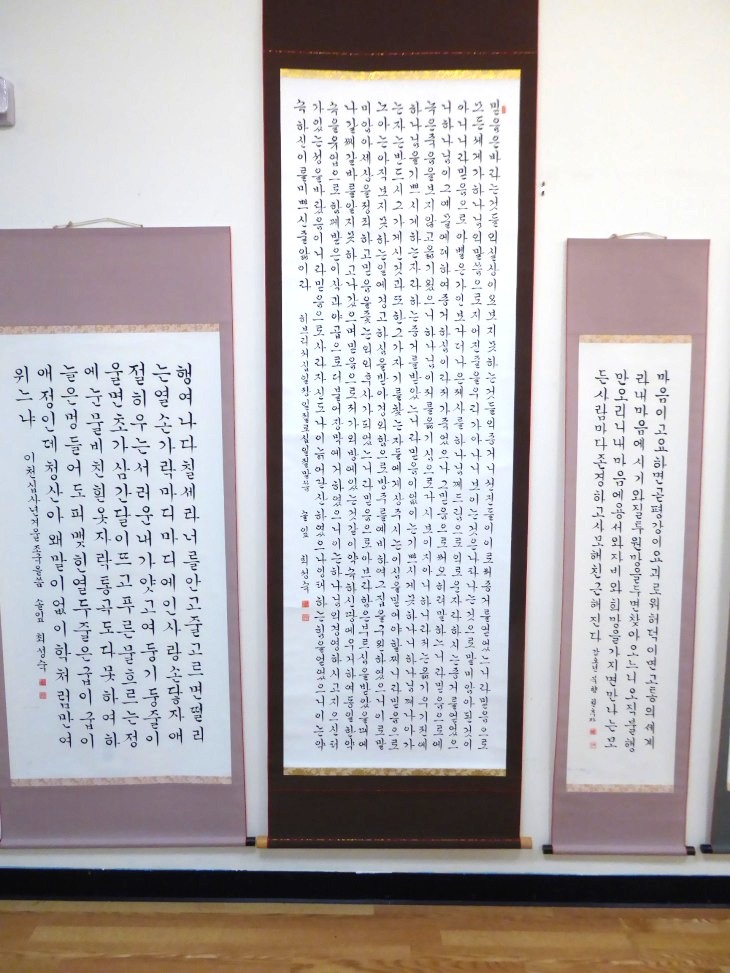 행여나다칠세라너를안고줄고르면떨리
는열손가락마디마디에인사랑손닿자애
절히우는서러운내가얏고여둥기둥줄이
울면초가삼간달이뜨고푸른물흐르는정
에눈물비친흰옷자락통곡도다못하여하
늘은멍들어도피맺힌열두줄은굽이굽이
애정인데청산아왜말이없이학처럼만여
위느냐
믿음은바라는것들의실상이요보지못하는것들의증거니선진들이이로써증거를얻었느니라믿음으로
모든세계가하나님의말씀으로지어진줄을우리가아나니보이는것은나타난것으로말미암아된것이
아니니라믿음으로아벨은가인보다더나은제사를하나님께드림으로의로운자라하시는증거를얻었으
니하나님이그예물에대하여증거하심이라저가죽었으나그믿음으로써오히려말하느니라믿음으로에
녹은죽음을보지않고옮기웠으니하나님이저를옮기심으로다시보이지아니하니라저는옮기우기전에
하나님을기쁘시게하는자라하는증거를받았느니라믿음이없이는기쁘시게못하나니하나님께나아가
는자는반드시그가계신것과또한그가자기를찾는자들에게상주시는이심을믿어야할찌니라믿음으로
노아는아직보지못하는일에경고하심을받아경외함으로방주를예비하여그집을구원하였으니이로말
미암아세상을정죄하고믿음을좇는의의후사가되었느니라믿음으로아브라함은부르심을받았을때에
나갈쌔갈바를알지못하고나갔으며믿음으로저가외방에있는것같이약속하신땅에우거하여동일한약
속을유업으로함께받은이삭과야곱으로더불어장막에거하였으니이는하나님의경영하시고지으실터
가있는성을바랐음이니라믿음으로사라자신도나이늙어단산하였으나잉태하는힘을얻었으니이는약
속하신이를미쁘신줄앎이라
마음이고요하면곧평강이요괴로워해덕이면고통의세계
라내마음에시기와질투원망을두면찾아오느니오직불행
만오리니내마음에용서와자비와희망을가지면만나는모
든사람마다존경하고사모해친근해진다